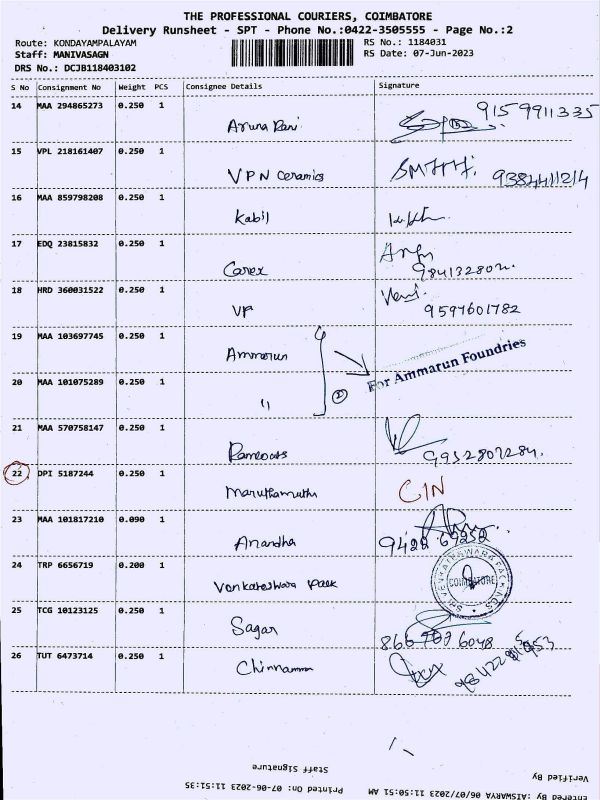 THE PROFESSIONAL COURIERS, COIMBATORE
Delivery Runsheet - SPT - Phone No.:0422-3505555 - Page No.:2
Route: KONDAYAMPALAYAM
Staff: MANIVASAGN
DRS No.: DCJB118403102
RS No.: 1184031
RS Date: 07-Jun-2023
S No Consignment No Weight PCS Consignee Details Signature
14 MAA 294865273 0.250 1 Aruna Rani 9159911335
15 VPL 218161407 0.250 1 VPN Ceramics 9384411214
16 MAA 859798208 0.250 1 Kabil
17 EDQ 23815832 0.250 1 Carex 984132802
18 HRD 360031522 0.250 1 VP 9597601782
19 MAA 103697745 0.250 1 Ammarun
For Ammarun Foundries
20 MAA 101075289 0.250 1 "
21 MAA 570758147 0.250 1 9952807284
22 DPI 5187244 0.250 1 Maruthamuthu CIN
23 MAA 101817210 0.090 1 Anandha 9422 69252
24 TRP 6656719 0.200 1 Venkateshwara Pack
SRI VENKATESWARA PACKINGS
COIMBATORE
25 TCG 10123125 0.250 1 Sagar
26 TUT 6473714 0.250 1 Chinnamma
Staff Signature
Verified By
Printed On: 07-06-2023 11:51:35
Entered By: AISWARYA 06/07/2023 11:50:51 AM